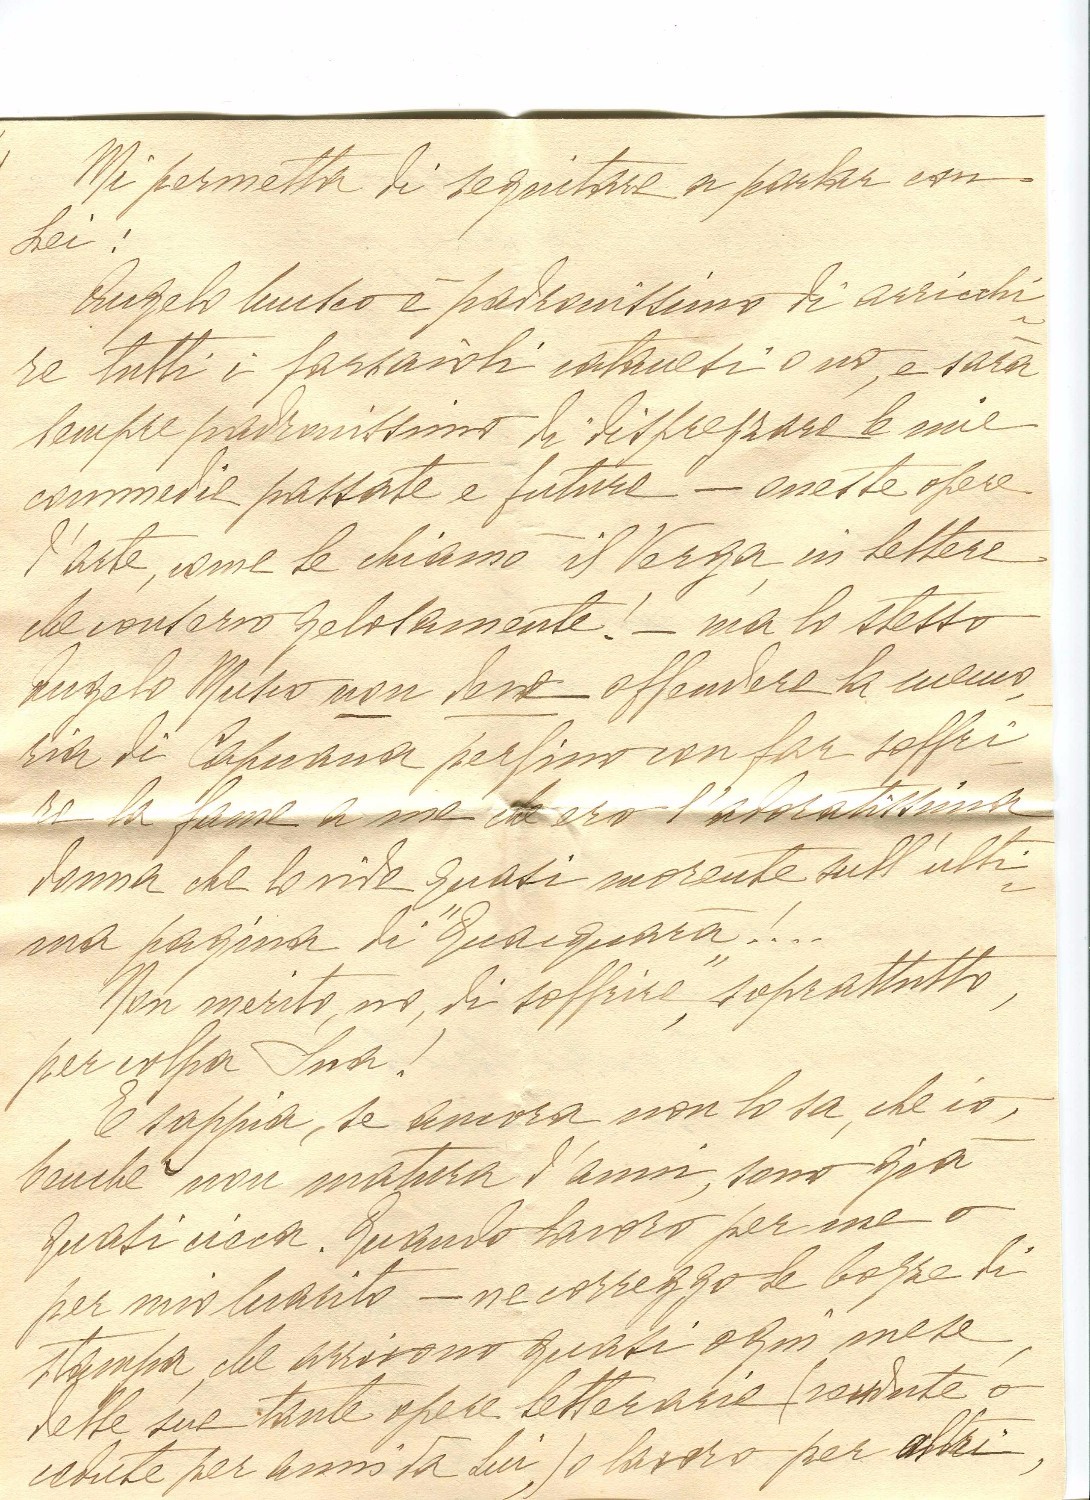 Mi permetta di seguitare a parlar con
Lei!
Angelo Musco è padronissimo di arricchi-
re tutti i farsaioli catanesi o no, e sarà
sempre padronissimo di disprezzare le mie
commedie passate e future — oneste opere
d'arte, come le chiamò il Verga, in lettere
che conservo gelosamente! — ma lo stesso
Angelo Musco non deve offendere la memo-
ria di Capuana perfino con far soffri-
re la fame a me che ero l'adoratissima
donna che lo vide quasi morente sull'ulti-
ma pagina di "Quaquarà"!...
Non merito, no, di soffrire, soprattutto,
per colpa Sua!
E sappia, se ancora non lo sa, che io,
benché non matura d'anni, sono già
quasi cieca. Quando lavoro per me o
per mio marito — ne correggo le bozze di
stampa, che arrivano quasi ogni mese,
delle sue tante opere letterarie (vendute o
cedute per anni da Lui,) o lavoro per altri,